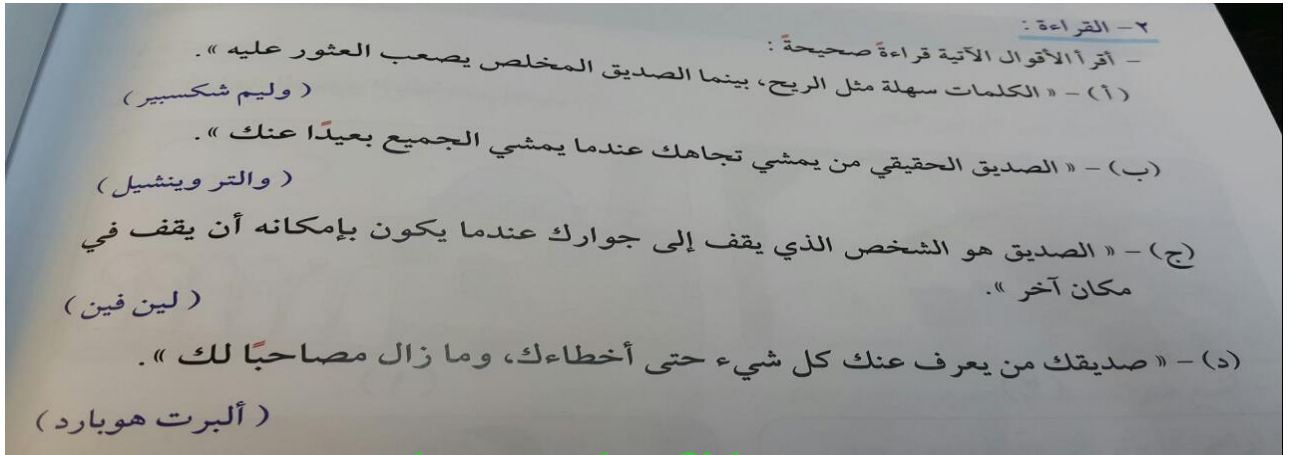 ٢ – القراءة :
– أقرأ الأقوال الآتية قراءةً صحيحةً :
(أ) – « الكلمات سهلة مثل الريح، بينما الصديق المخلص يصعب العثور عليه ».
( وليم شكسبير )
(ب) – « الصديق الحقيقي من يمشي تجاهك عندما يمشي الجميع بعيدًا عنك ».
( والتر وينشيل )
(ج) – « الصديق هو الشخص الذي يقف إلى جوارك عندما يكون بإمكانه أن يقف في
مكان آخر ».
( لين فين )
(د) – « صديقك من يعرف عنك كل شيء حتى أخطاءك، وما زال مصاحبًا لك ».
( ألبرت هوبارد )